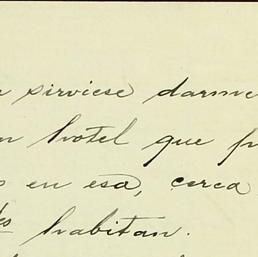 sirviese darme
hotel que
en esa, cerca
habitan.